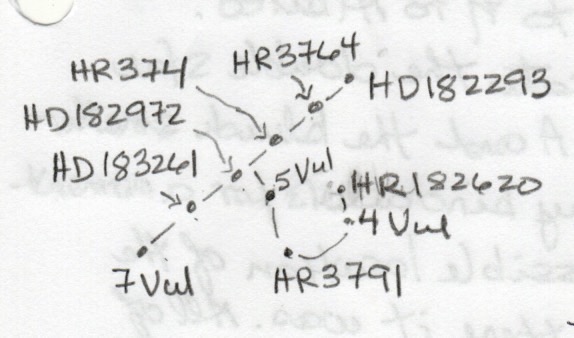 HR374 HR3764
HD182293
HD182972
HD183261
5 Vul
HR182620
4 Vul
7 Vul
HR3791